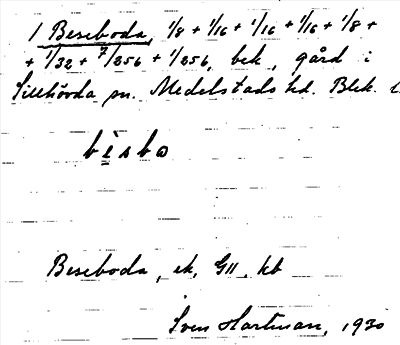 1 Beseboda, 1/8 + 1/16 + 1/16 + 1/16 + 1/8 +
+ 1/32 + 7/256 + 1/256, bek, gård i
Sillhövda sn. Medelstads hd. Blek. l.
bèsbo
Beseboda, ek, GII, kb
Sven Hartman, 1930